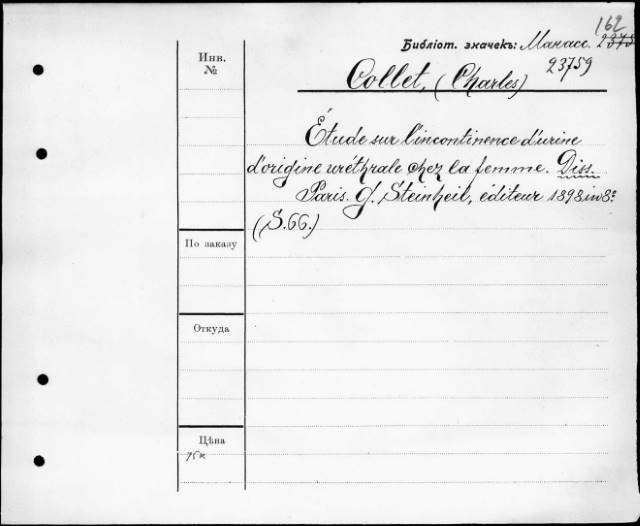 162
Библіот. значекъ: Манасс. 2375
23759
Collet, (Charles)
Инв.
№
Étude sur l'incontinence d'urine
d'origine uréthrale chez la femme. Diss.
Paris. G. Steinheil, éditeur 1898 in 8º
(S. 66.)
По заказу
Откуда
Цѣна
75к